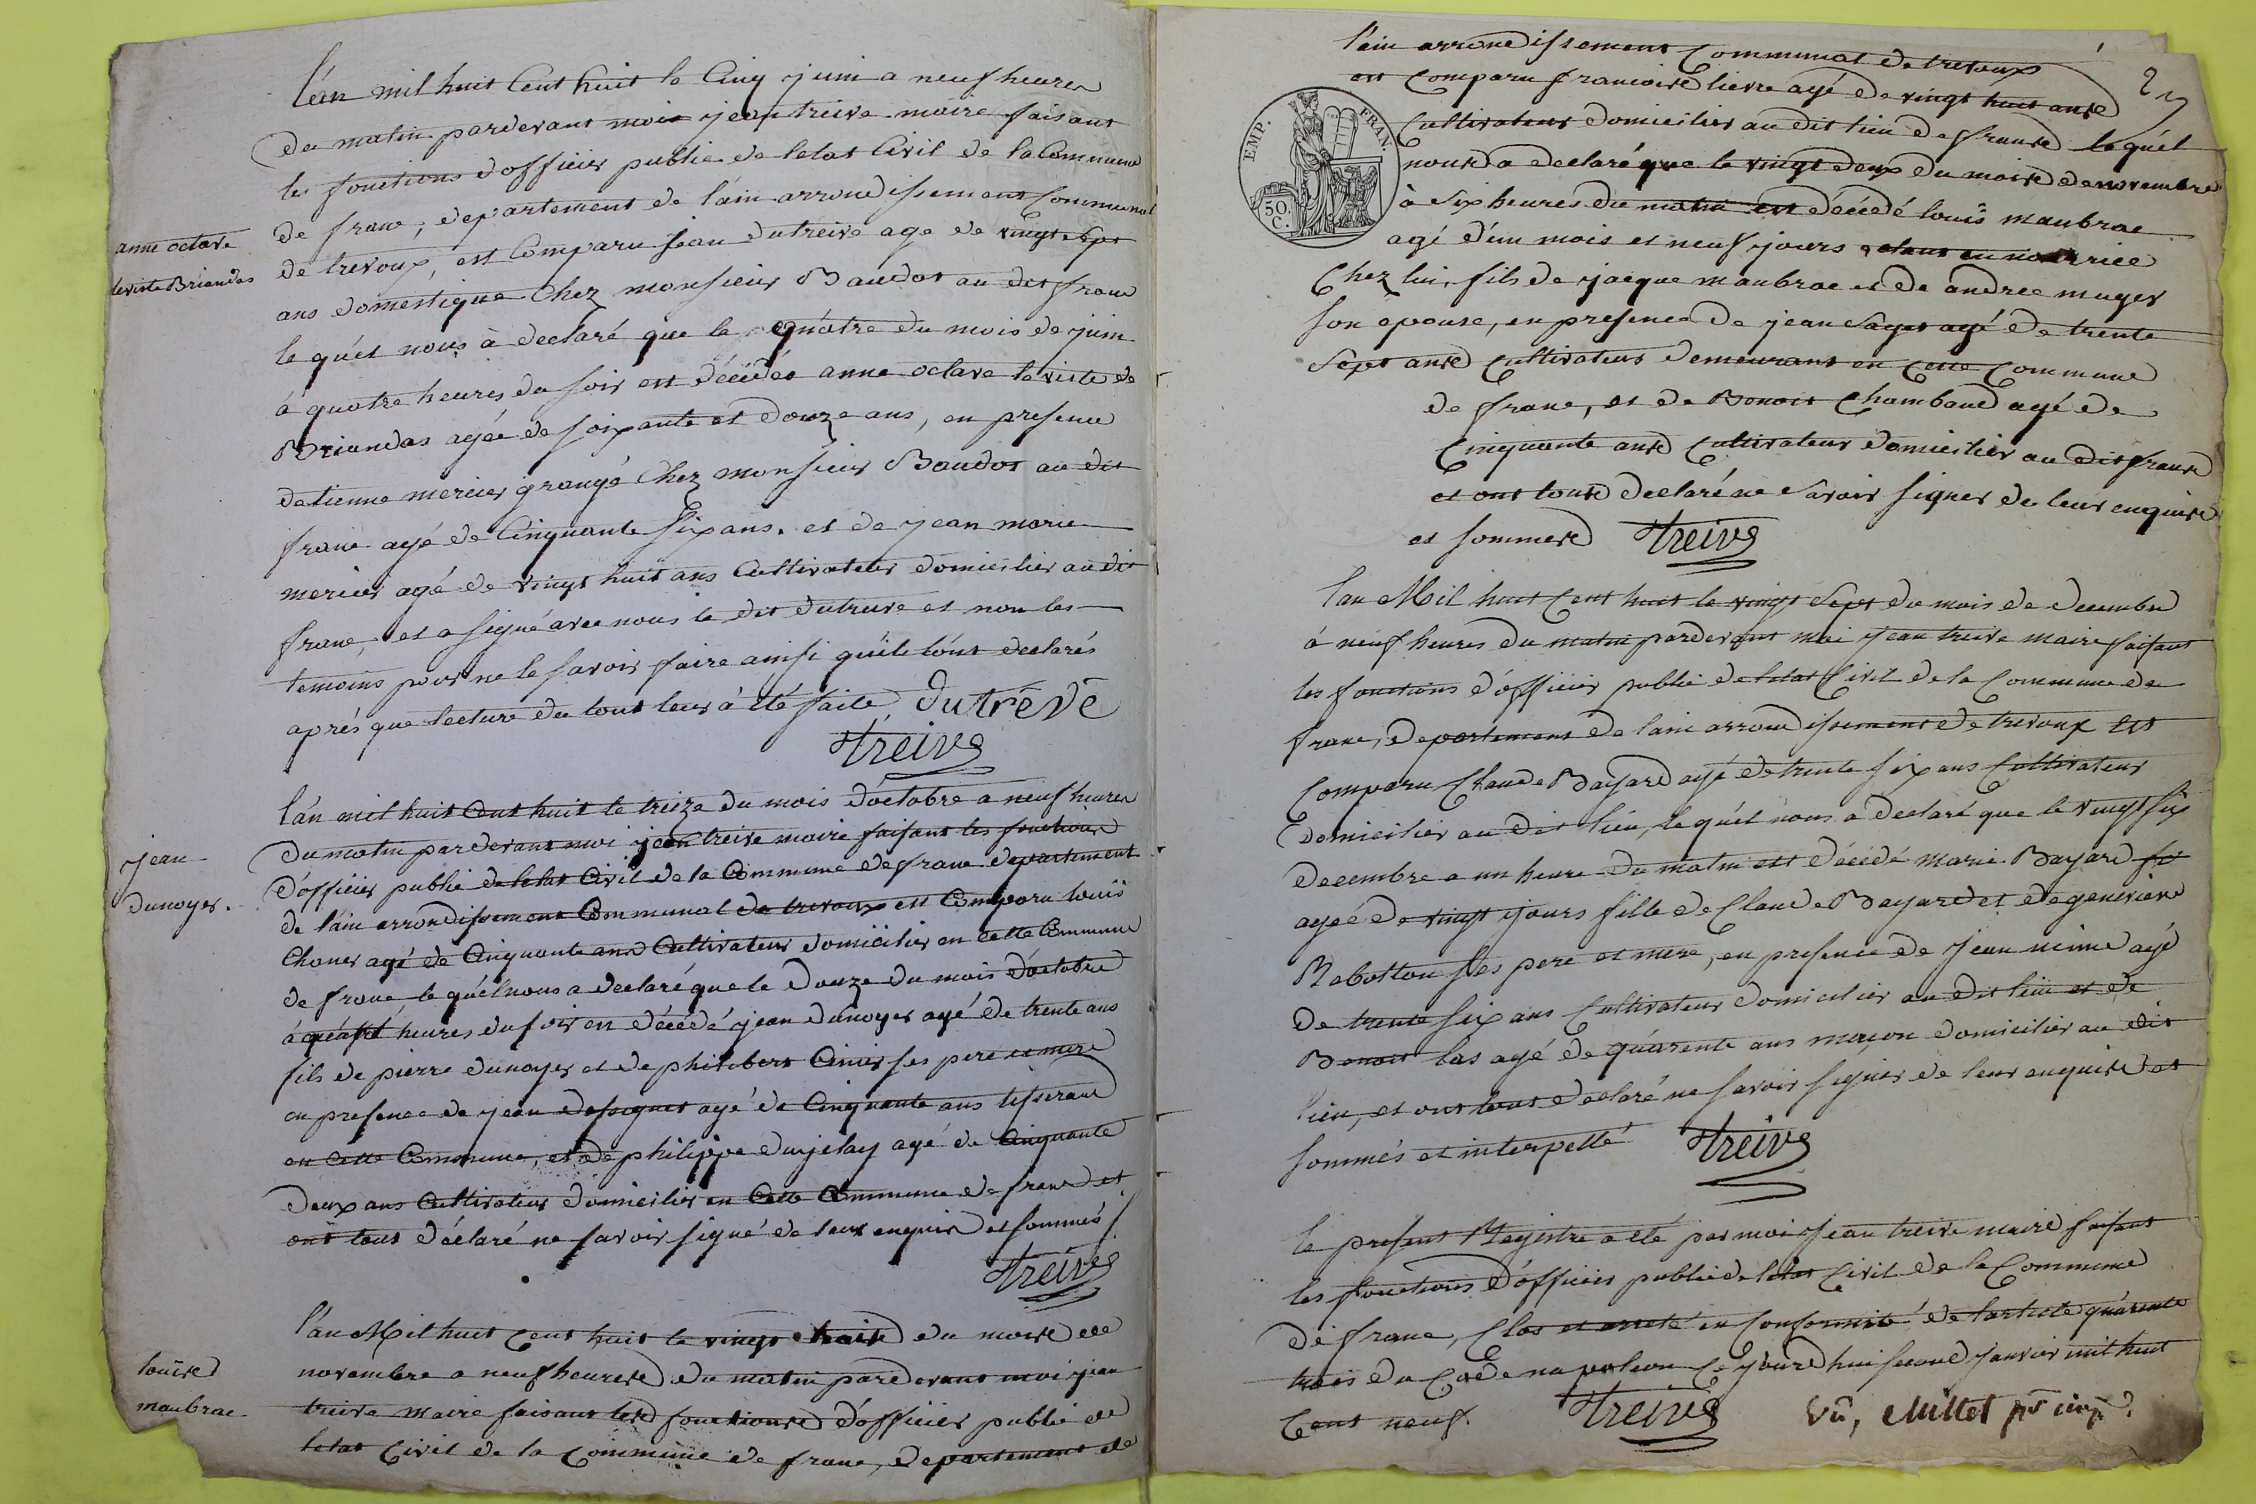 l'an mil huit Cent huit le Cinq juin a neuf heures
du matin pardevant moi jean treive maire faisant
les fonctions d'officier public de letat Civil de la Commune
de franc, departement de l'ain arrondissement Communal
anne octave
de trevoux, est Comparu jean dutreive age de vingt sept
leviste Briandas
ans domestique Chez monsieur Baudot au dit franc
le quél nous à declaré que le quatre du mois de juin
à quatre heures du soir est décédée anne octave leviste de
Briandas agée de soixante et douze ans, en presence
detienne mercier grangé Chez monsieur Baudot au dit
franc agé de Cinquante six ans. et de jean marie
mercier agé de vingt huit ans Cultivateur domicilier au dit
franc, et a signé avec nous le dit dutreive et non les
temoins pour ne le savoir faire ainsi quile lónt declarés
aprés que lecture du tout leur à été faite Dutréve
treive
l'án mil huit Cent huit le treize du mois d'octobre a neuf heures
du matin par devant moi jean treive maire faisant les fonctions
jean
d'officier public de letat Civil de la Commune de franc departement
dunoyer.
de l'ain arrondissement Communal de trevoux est Comparu louis
agé de Cinquante ans Cultivateur domicilier en cette Commune
de franc le quél nous a declaré que le douze du mois d'octobre
à quatre heures du soir est décédé jean dunoyer agé de trente ans
fils de pierre dunoyer et de philibert ses pere et mere
en presence de jean agé de Cinquante ans tisserand
en cette Commune, et de philippe dujelay agé de Cinquante
deux ans Cultivateur domicilier en cette Commune de franc et
ont tous déclaré ne savoir signé de leur enquis et sommés
treive
l'an Mil huit Cent huit le vingt trois du mois de
novembre a neuf heures du matin pardevant moi jean
louise
treive maire faisant les fonctions d'officier public de
maubrac
letat Civil de la Commune de franc, departement de
l'ain arrondissement Communal de trevoux
27
est Comparu francois lievre agé de vingt huit ans
Cultivateur domicilier au dit lieu de franc le quél
nous a declaré que le vingt deux du mois de novembre
à six heures du matin est décédé louis maubrac
agé d'un mois et neuf jours etant en nourrice
Chez lui, fils de jacque maubrac et de andree muger
son epouse, en presence de jean sage agé de trente
sept ans Cultivateur demeurant en cette Commune
de franc, et de Benoit Chambaud agé de
Cinquante ans Cultivateur domicilier au dit franc
et ont tous declaré ne savoir signer de leur enquise
et sommere treive
EMP. FRAN.
50. C.
l'an Mil huit Cent huit le vingt sept du mois de decembre
à neuf heures du matin pardevant moi jean treive maire faisant
les fonctions d'officier public de letat Civil de la Commune de
franc, departement de lain arrondissement de trevoux est
Comparu Claude Bayard agé de trente six ans Cultivateur
domicilier au dit lieu, le quél nous a declaré que le vingt six
decembre a un heure du matin est décédé marie Bayard fi
ageé de vingt jours fille de Claude Bayard et de genevieve
Rebotton ses pere et mere, en presence de jean mime agé
de trente six ans Cultivateur domicilier au dit lieu et de
Benoit las agé de quarente ans maçon domicilier au dit
lieu, et ont tous declaré ne savoir signer de leur enquise et
sommés et interpellé treive
le present Registre a été par moi jean treive maire faisant
les fonctions d'officier public de letat Civil de la Commune
de franc, Clos et areté en Conformité de l'article quarente
trois du Code napoleon Ce jourd'hui second janvier mil huit
Cent neuf. treive Vu, Millet